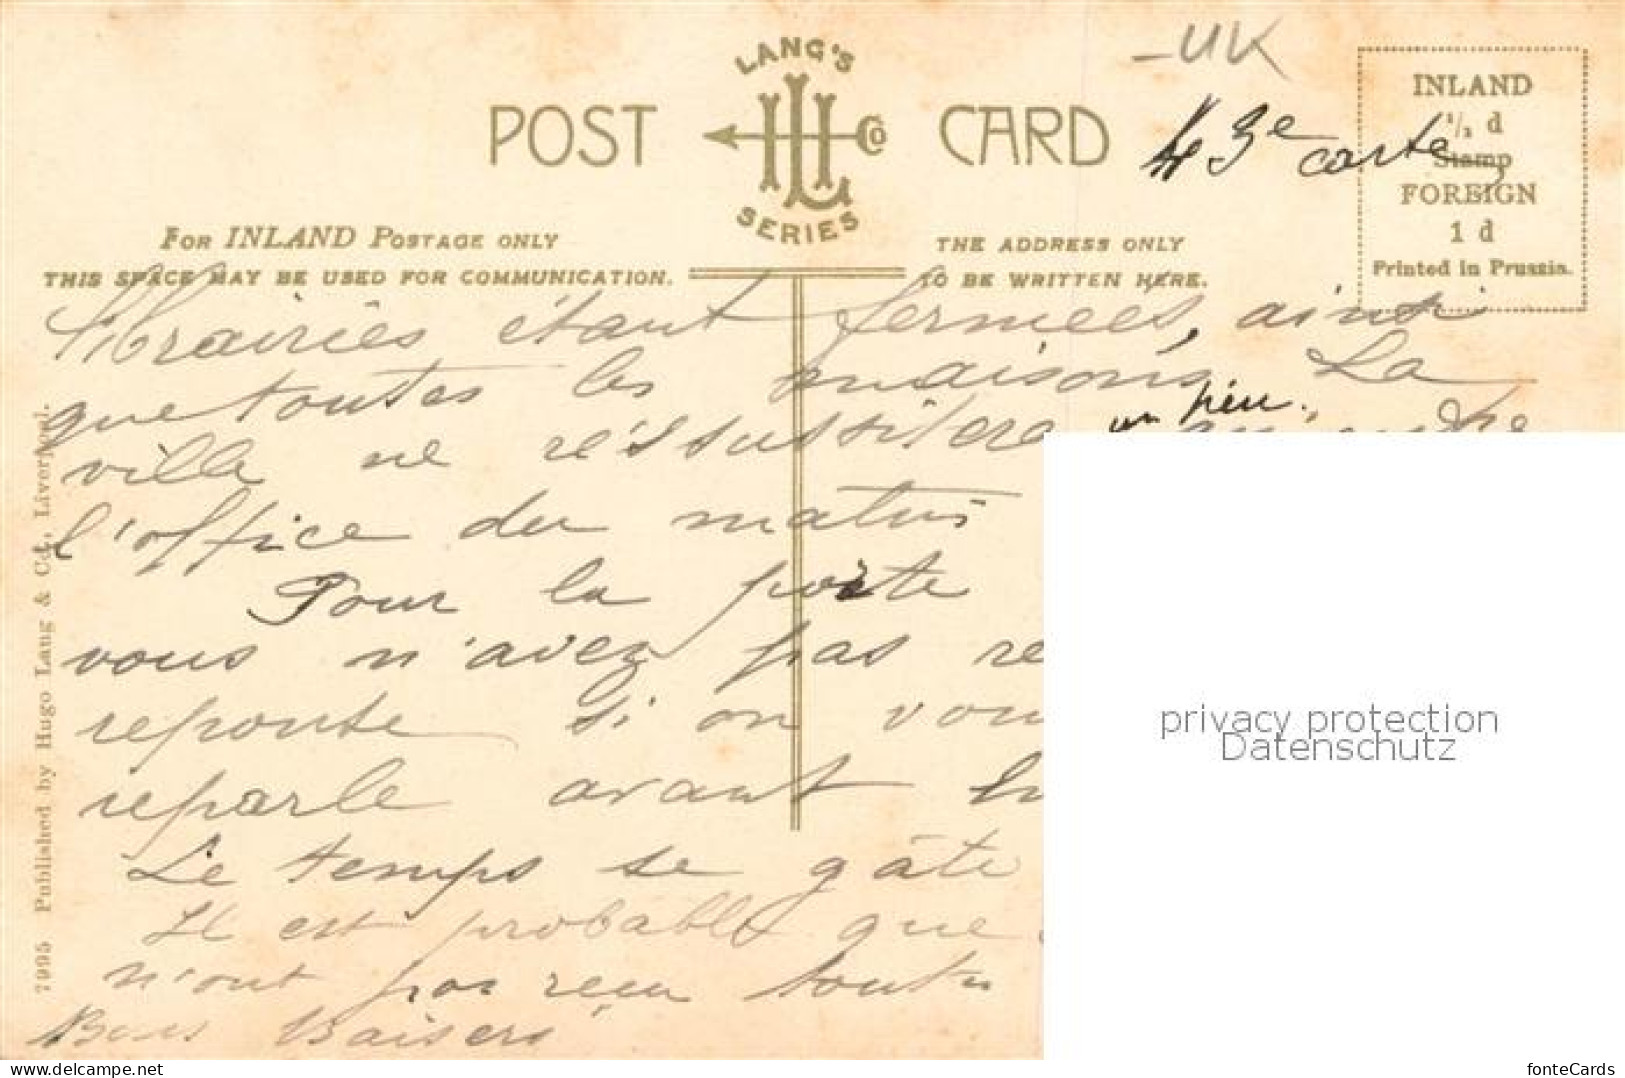 - UK
LANG'S
POST CARD
Co
SERIES
3e carte
INLAND
1/2 d
Stamp
FOREIGN
1 d
Printed in Prussia.
FOR INLAND POSTAGE ONLY
THIS SPACE MAY BE USED FOR COMMUNICATION.
THE ADDRESS ONLY
TO BE WRITTEN HERE.
librairies étant fermées, ainsi
que toutes les maisons. La
un peu.
ville ne réssussitera
l'office du matin
Pour la poste
vous n'avez pas re
reponse si on vou
reparle avant
Le temps se gâte
Il est probable que
n'ont pas reçu toutes
Bons Baisers
7995 Published by Hugo Lang & Co., Liverpool.
privacy protection
Datenschutz
www.delcampe.net
fonteCards